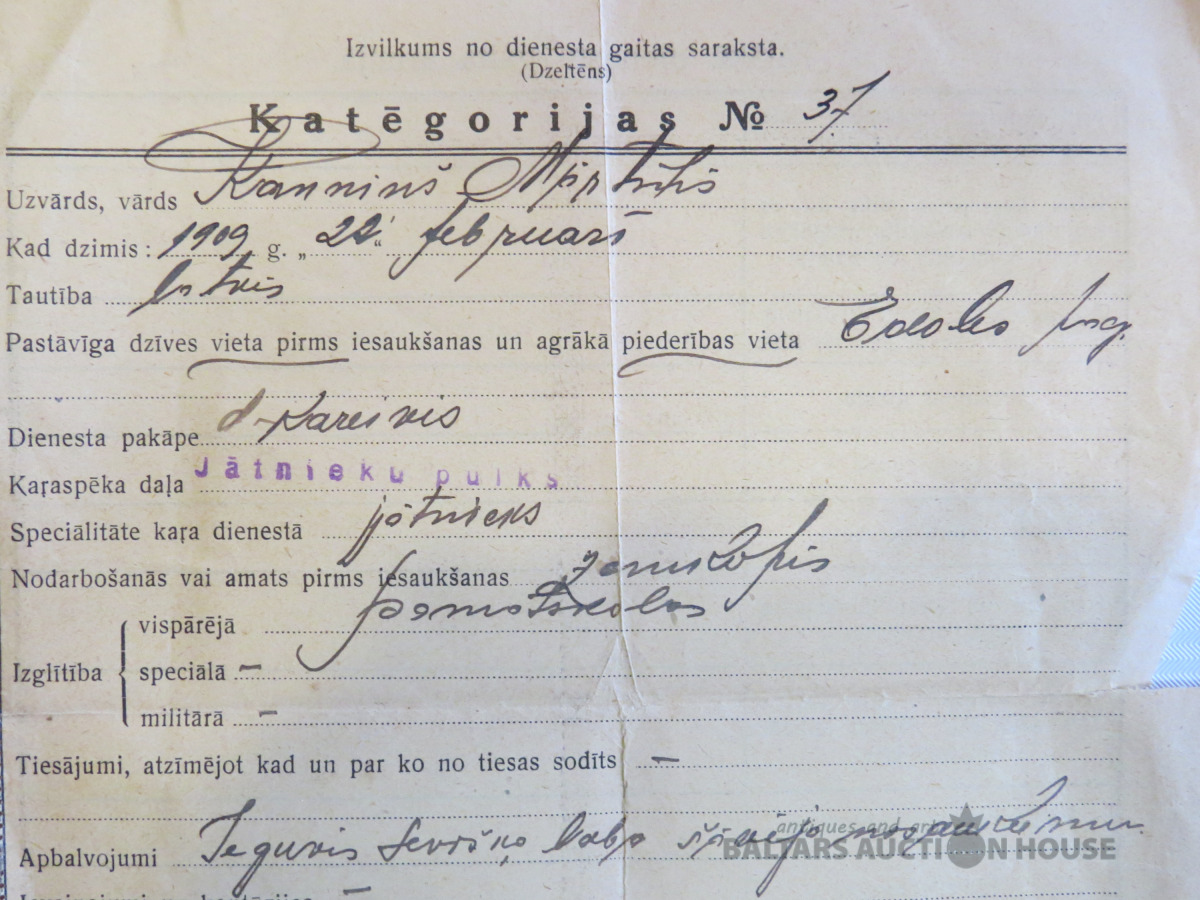 Izvilkums no dienesta gaitas saraksta.
(Dzeltēns)
Katēgorijas № 37
Uzvārds, vārds Kanniņš Mārtiņš
Kad dzimis: 1909 g. „22" februarī
Tautība latvis
Pastāvīga dzīves vieta pirms iesaukšanas un agrākā piederības vieta Ēdoles pag.
Dienesta pakāpe d-kareivis
Kaŗaspēka daļa Jātnieku pulks
Speciālitāte kaŗa dienestā jātnieks
Nodarbošanās vai amats pirms iesaukšanas zemkopis
vispārējā pamatskolas
Izglītība speciālā –
militārā –
Tiesājumi, atzīmējot kad un par ko no tiesas sodīts –
Apbalvojumi Ieguvis sevišķi laba šāvēja nosaukumu.
antiques and art
BALTARS AUCTION HOUSE